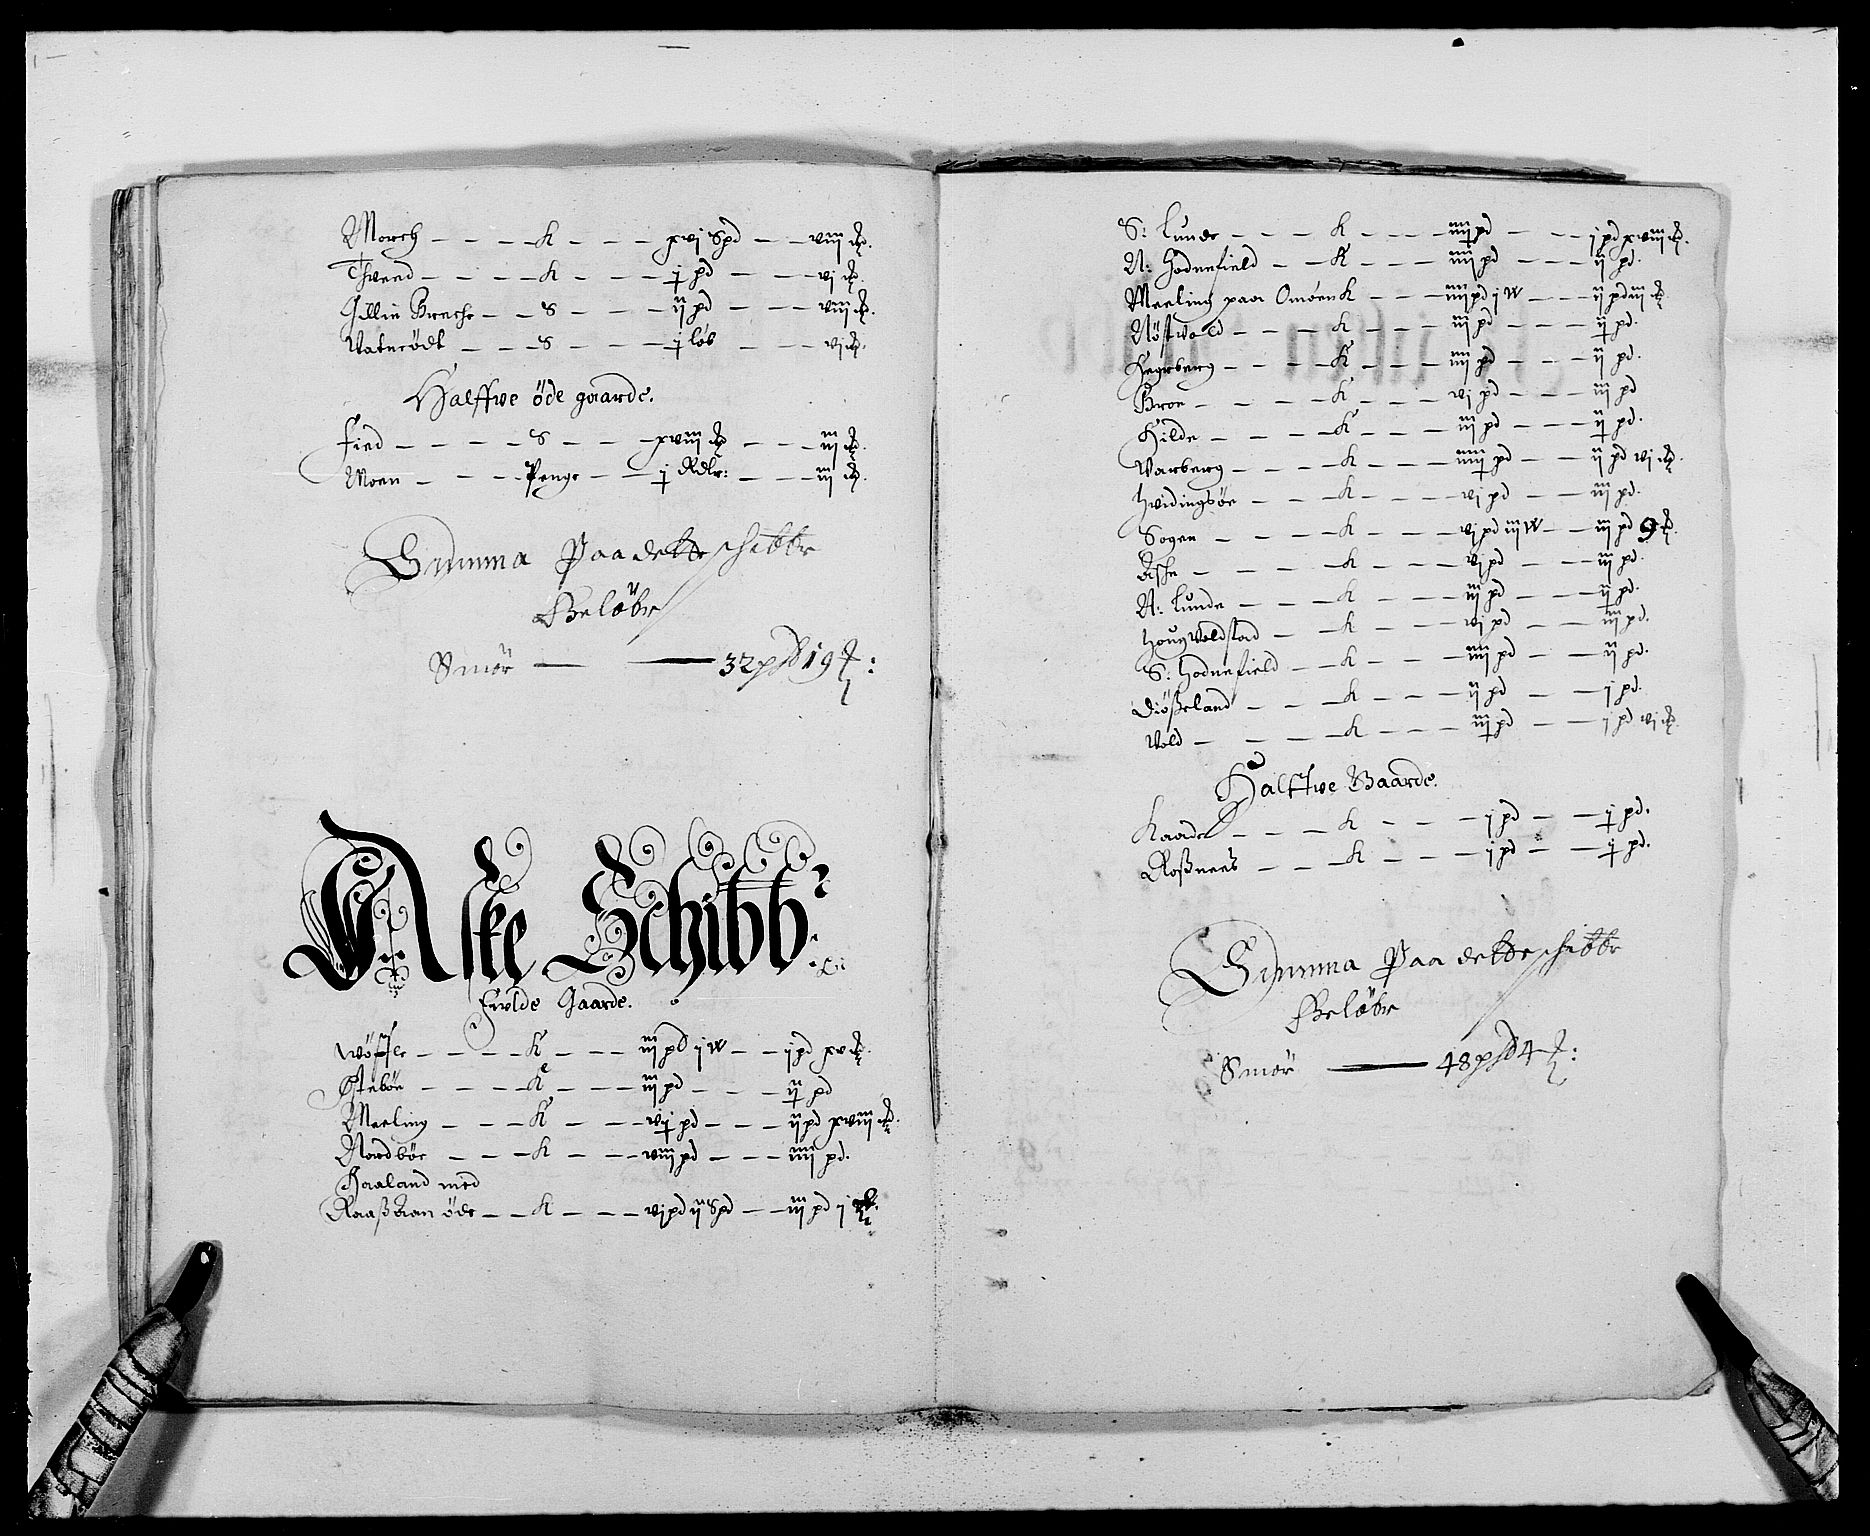 Morch – – – – K – – – xvj Spd – – viij ℔.
Thweed – – – – K – – – j pd – – – vj ℔.
Jillin Brecke – – S – – – ij pd – – – viij ℔.
Vatnedt – – – S – – – j løb – – – vj ℔.
Halffwe öde gaarde.
Fied – – – – S – – – xviij ℔ – – – iij ℔
Moen – – – Penge – – j Rdlr: – – – iij ℔.
Summa Paa dette schibbr
Beløbr
Smör — — 32 pd 19 ℔:
Aske Schibbr:
Fulde Gaarde.
Wöffle – – – – K – – – iij pd j W – – j pd xv ℔.
Østebøe – – – – K – – – iij pd – – – ij pd
Meeling – – – – K – – – vij pd – – – ij pd xviij ℔.
Nordbøe – – – K – – – viij pd – – – iiij pd.
Haaland med
Raaß öde – – K – – – vj pd ij Spd – – iij pd j
S: Lunde – – – – K – – – iiij pd – – – j pd xviij ℔.
N: Hodnefield – – K – – – iiij pd – – – ij pd.
Meeling paa Omöen K – – – iiij pd j W – – – ij pd iij ℔.
Nöstvold – – – – K – – – iij pd – – – ij pd.
Hegrberg – – – – K – – – iiij pd – – – ij pd.
Broe – – – – K – – – vj pd – – – iij pd
Hilde – – – – K – – – iij pd – – – ij pd.
Varberg – – – – K – – – iiij pd – – – ij pd vj ℔.
Hvidingsöe – – – K – – – vj pd – – – iij pd.
Sogen – – – – K – – – vj pd iij W – – iij pd 9 ℔.
Aske – – – – K – – – vj pd – – – iij pd.
N: Lunde – – – – K – – – iij pd – – – ij pd.
Houguoldstad – – K – – – vj pd – – – iij pd.
S: Hodnefield – – K – – – iiij pd – – – ij pd.
Diößeland – – – K – – – ij pd – – – j pd.
Vold – – – – K – – – iij pd – – j pd vj ℔.
Halffwe Gaarde.
Kaade – – – K – – – j pd – – – j pd.
Roßnees – – – K – – – j pd – – – j pd.
Summa Paa dette schibbr
Beløbr
Smör — 48 pd 4 ℔: